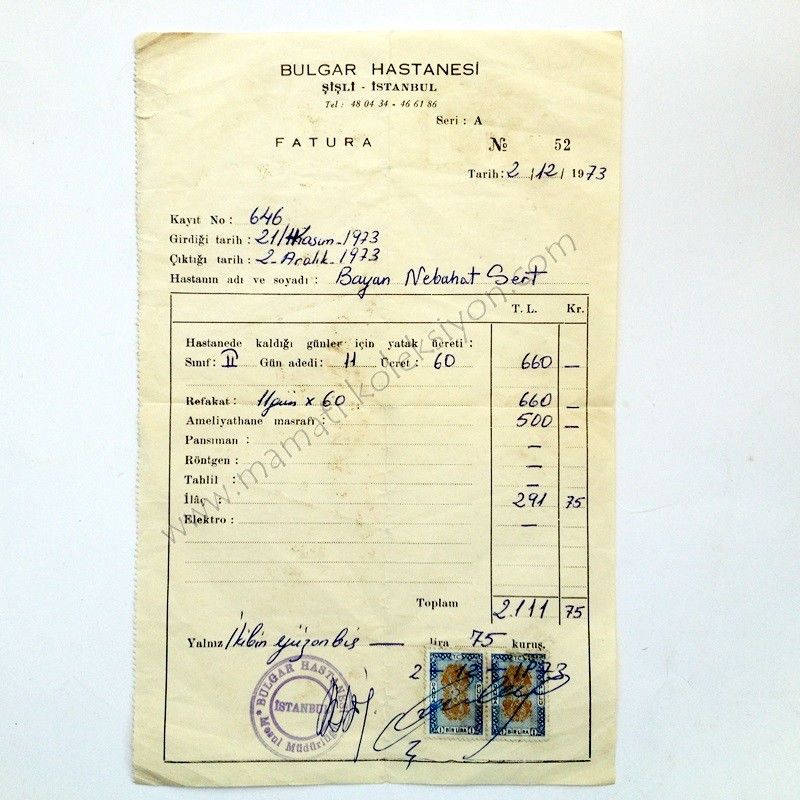 BULGAR HASTANESİ
ŞİŞLİ - İSTANBUL
Tel : 48 04 34 - 46 61 86
Seri : A
FATURA № 52
Tarih: 2 / 12 / 1973
Kayıt No : 646
Girdiği tarih : 21/Kasım-1973
Çıktığı tarih : 2-Aralık-1973
Hastanın adı ve soyadı : Bayan Nebahat Sert
T. L. Kr.
Hastanede kaldığı günler için yatak ücreti :
Sınıf: II Gün adedi: 11 Ücret : 60 660 —
Refakat : 11 gün x 60 660 —
Ameliyathane masrafı : 500 —
Pansıman : —
Röntgen : —
Tahlil : —
İlâç : 291 75
Elektro : —
Toplam 2.111 75
Yalnız İkibin yüzonbir — lira 75 kuruş.
BULGAR HASTANESİ
İSTANBUL
Mesul Müdürlüğü
BİR LİRA
BİR LİRA
www.mamatikoleksiyon.com